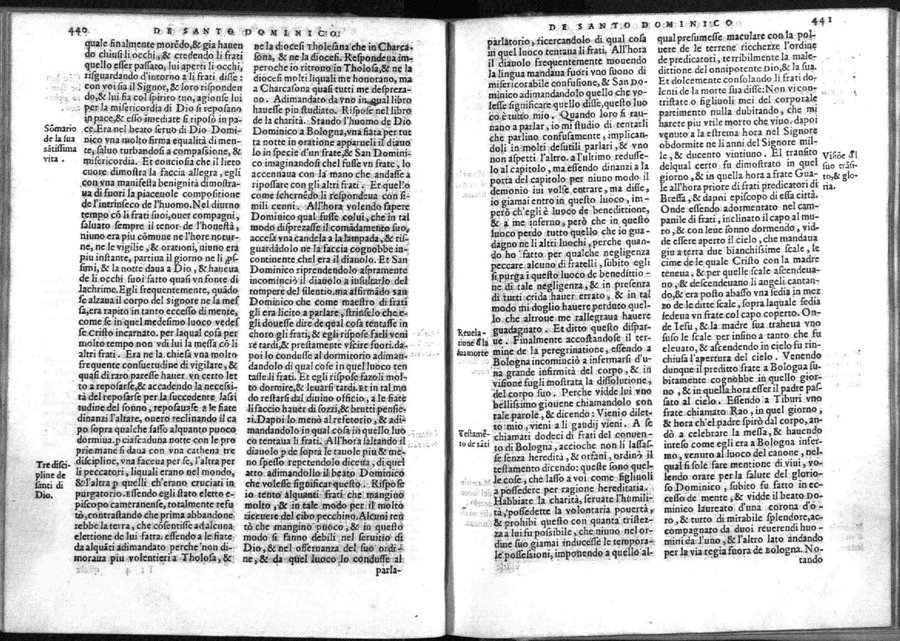 440 DE SANTO DOMINICO.
quale finalmente morēdo, & gia hauen
do chiusi li occhi, & credendo li frati
quello esser passato, lui aperti li occhi,
risguardando d'intorno a li frati disse:
con voi sia il Signor, & loro risponden
do, & lui sia col spirito tuo, agionse lui
per la misericordia di Dio si reposano
in pace, & esso imediate si riposò in pa
ce. Era nel beato seruo di Dio Domi-
nico vna molto firma equalità di men-
te, saluo turbandosi a compassione, &
misericordia. Et conciosia che il lieto
cuore dimostra la faccia allegra, egli
con vna manifesta benignità dimostra-
ua di fuori la piaceuole compositione
de l'intrinseco de l'huomo. Nel diurno
tempo cō li frati suoi, ouer compagni,
saluato sempre il tenor de l'honestà,
niuno era piu cōmune ne l'hore nottur-
ne, ne le vigilie, & orationi, niuno era
piu instante, partiua il giorno ne li ṕssi
mi, & la notte daua a Dio, & haueua
de li occhi suoi fatto quasi vn fonte di
lachrime. Egli frequentemente, quādo
se alzaua il corpo del signore ne la mes
sa, era rapito in tanto eccesso di mente,
come se in quel medesimo luoco vedes
se Cristo incarnato. per laqual cosa per
molto tempo non vdì lui la messa cō li
altri frati. Era ne la chiesa vna molto
frequente consuetudine di vigilare, &
quasi di raro paresse hauer vn certo let
to a reposarse, & accadendo la necessi-
tà del reposarse per la succedente lassi
tudine del sonno, reposauase a le fiate
dinanzi l'altare, ouero reclinando il ca
po sopra qualche sasso alquanto puoco
dormiua. p ciascaduna notte con le pro
prie mane si daua con vna cathena tre
discipline, vna faceua per se, l'altra per
li peccatori, liquali erano nel mondo,
& l'altra p quelli ch'erano cruciati in
purgatorio. Essendo egli stato eletto e-
piscopo cameranense, totalmente refu
tò, contrastando che prima abbandone
rebbe la terra, che cōsentisse ad alcuna
elettione di lui fatta. essendo a le fiate
da alquāti adimandato perche non di-
moraua piu volentieri a Tholosa, &
Sōmario
de la sua
sātissima
vita.
Tre disci-
pline de
santi di
Dio.
ne la diocesi Tholosana che in Charca-
sona, & ne la diocesi. Respondeua im-
peroche io ritrouo in Tholosa, & ne la
diocesi molti liquali me honorano, ma
a Charcasona quasi tutti me desprezza-
no. Adimandato da vno in qual libro
hauesse piu studiato. Rispose nel libro
de la charità. Stando l'huomo de Dio
Dominico a Bologna, vna fiata per tut
ta notte in oratione apparueli il diauo
lo in specie d'un frate, & San Domini-
co imaginandosi chel fusse vn frate, lo
accennaua con la mano che andasse a
ripossare con gli altri frati. Et quel'o
come schernēdo li respondeua con si-
mili cenni. All'hora volendo sapere
Dominico qual fusse colui, che in tal
modo disprezasse il comādamento suo,
accesa vna candela a la lampada, & ris-
guardādolo ne la faccia cognobbe in-
continente chel era il diauolo. Et San
Dominico riprendendolo aspramente
incominciò il diauolo a insultarlo del
rompere del silentio. ma affirmādo san
Dominico che come maestro di frati
gli era licito a parlare, strinselo che e-
gli douesse dire de qual cosa tentasse in
choro gli frati, & egli rispose farli veni
re tardi, & prestamente vscire fuori. da-
poi lo condusse al dormitorio adiman-
dandolo di qual cose in quel luoco ten
tasse li frati. Et egli rispose fazoli mol-
to dormire, & leuarsi tardi. et in tal mo
do restarsi dal diuino officio, a le fiate
li faccio hauer di sozzi, & brutti pensie-
ri. Dapoi lo menò al refetorio, & adi-
mandandolo in qual cosa in quello luo
co tentaua li frati. All'hora saltando il
diauolo p de sopra le tauole piu & me-
no spesso repetendolo diceua, di quel
atto. adimandollo il beato Dominico
che volesse significar questo. Rispose
io tento alquanti frati che mangino
molto, & in tale modo per il molto
riceuere del cibo pecchino. Alcuni ten
tò che mangino puoco, & in questo
modo si fanno debili nel seruitio di
Dio, & nel osseruanza del suo ordi-
ne, & da quel luoco lo condusse al
parla-
DE SANTO DOMINICO 441
parlatorio, ricercandolo di qual cosa
in quel luoco tentaua li frati. All'hora
il diauolo frequentemente mouendo
la lingua mandaua fuori vn suono di
misericordabile confusione. & San Do-
minico adimandandolo quello che vo-
lesse significare quello, disse, questo luo
co è tutto mio. Quando loro si rau-
nano a parlar, io mi studio di tentarli
che parlino confusamente, implican-
doli in molti desutili parlari, & vno
non aspetti l'altro. a l'ultimo redusse-
lo al capitolo, ma essendo dinanzi a la
porta del capitolo per niuno modo il
demonio iui volse entrare, ma disse,
io giamai entro in questo luoco, im-
però ch'egli è luoco de benedittione,
& a me inferno, però che in questo
luoco perdo tutto quello che io gua-
dagno ne li altri luochi, perche quan-
do ho fatto per qualche negligenza
peccare alcuno di fratelli, subito egli
si purga i questo luoco de benedittio-
ne di tale negligenza, & in presenza
di tutti crida hauer errato, & in tal
modo mi doglio hauere perduto quel-
lo che altroue me rallegraua hauere
guadagnato. Et ditto questo dispar-
ue. Finalmente accostandose il ter-
mine de la peregrinatione, essendo a
Bologna incominciò a infermarsi d'u-
na grande infirmità del corpo, & in
visione fugli mostrata la dissolutione,
del corpo suo. Perche vidde lui vno
bellissimo giouene chiamandolo con
tale parole, & dicendo: Vieni o dilet-
to mio, vieni a li gaudij vieni. A se
chiamati dodeci di frati del conuen-
to di Bologna, accioche non li lassas-
se senza heredità, & orfani, ordinò il
testamento dicendo: queste sono quel-
le cose, che lasso a voi come figliuoli
a possedere per ragione hereditaria.
Habbiate la charità, seruate l'humili-
tà, possedette la volontaria pouertà,
& prohibì questo con quanta stretez-
za a lui fu possibile, che niuno nel or-
dine suo giamai inducesse le tempora-
le possessioni, imponendo a quello al-
Reuela-
tione d la
sua morte
Testamē-
to de sāti
qual presumesse maculare con la pol-
uere de le terrene ricchezze l'ordine
de predicatori, terribilmente la male-
dittione del onnipotente Dio, & la sua.
Et dolcemente consolando li frati do-
lenti de la morte sua disse: Non vi con-
tristate o figliuoli mei del corporale
partimento nulla dubitando, che mi
harete piu vtile morto che viuo. dapoi
venuto a la estrema hora nel Signore
obdormite ne li anni del Signore mil-
le, & ducento vintiuno. El transito
delqual certo fu dimostrato in quel
giorno, & in quella hora a frate Gua-
le all'hora priore di frati predicatori di
Bressa, & dapoi episcopo di essa città.
Onde essendo adormentato nel cam-
panile di frati, inclinato il capo al mu-
ro, & con leue sonno dormendo, vid-
de essere aperto il cielo, che mandaua
giu a terra due bianchissime scale, le
cime de le quale Cristo con la madre
teneua, & per quelle scale ascendeua-
no, & descendeuano li angeli cantan-
do, & era posto abasso vna sedia in mez
zo de le ditte scale, sopra laquale sedia
sedeua vn frate col capo coperto. On-
de Iesu, & la madre sua traheua vno
suso le scale per insino a tanto che fu
eleuato, & ascendendo in cielo fu rin-
chiusa l'apertura del cielo. Venendo
dunque il preditto frate a Bologna su-
bitamente cognobbe in quello gior-
no, & in quella hora esser il padre pas-
sato al cielo. Essendo a Tiburi vno
frate chiamato Rao, in quel giorno,
& hora ch'el padre spirò dal corpo, an-
dò a celebrare la messa, & hauendo
inteso come egli era a Bologna infer-
mo, venuto al luoco del canone, nel-
qual si sole fare mentione di viui, vo-
lendo orare per la salute del glorio-
so Dominico, subito fu fatto in ec-
cesso de mente, & vidde il beato Do-
minico laureato d'una corona d'o-
ro, & tutto di mirabile splendore, ac-
compagnato da duoi reuerendi huo-
mini da l'uno, & l'altro lato andando
per la via regia fuora de Bologna. No-
tando
Visiōe d'l
suo trāsi-
to, & glo-
ria.